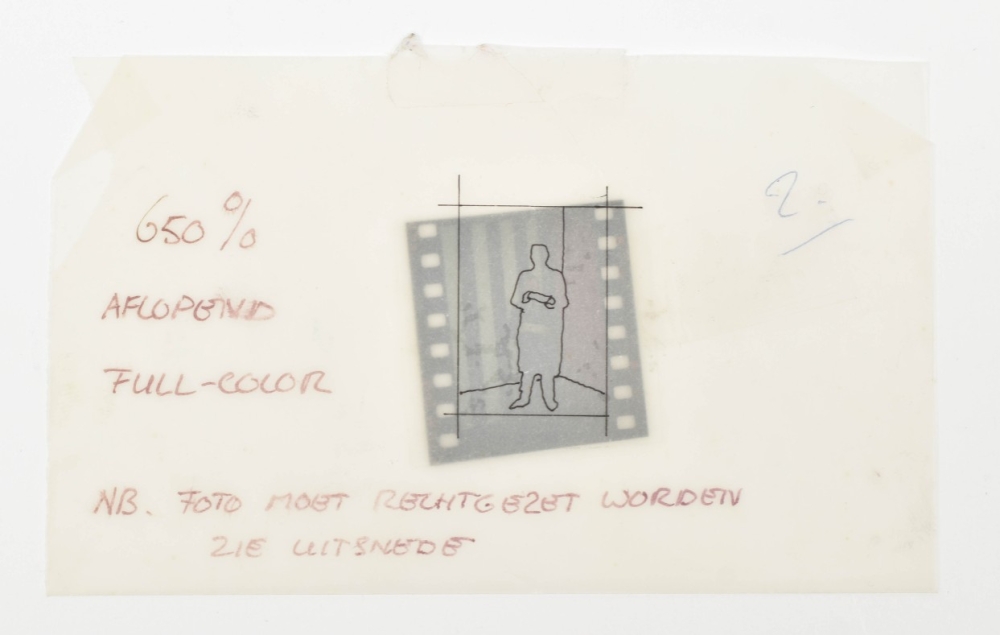 650 %
2.
AFLOPEND
FULL-COLOR
NB. FOTO MOET RECHTGEZET WORDEN
ZIE UITSNEDE